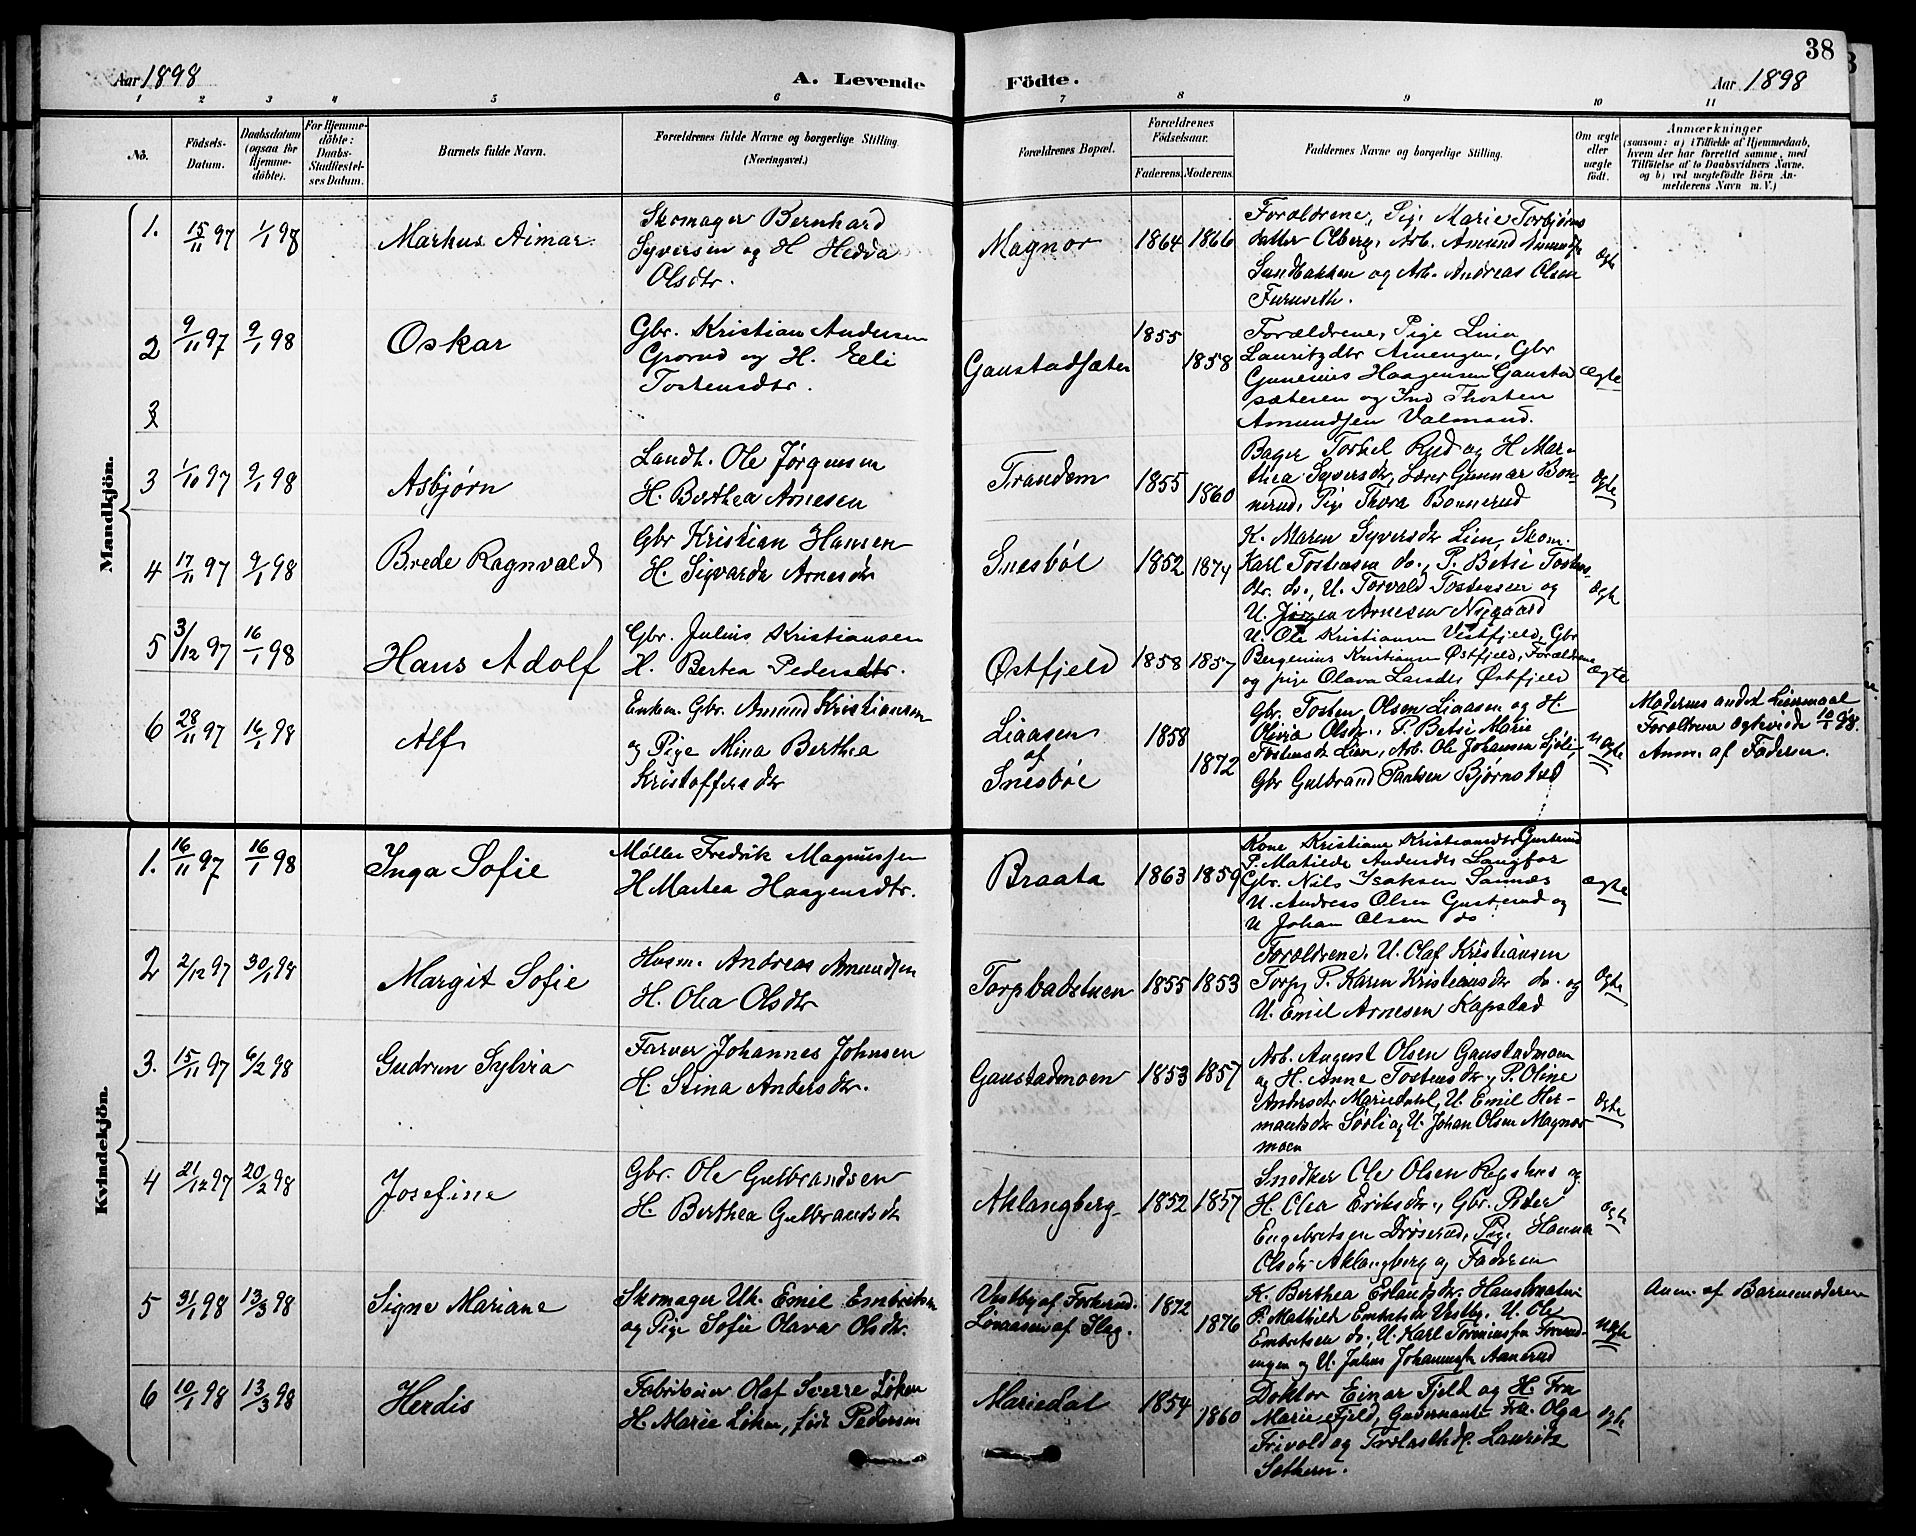 38
Aar 1898
A. Levende
Födte.
Aar 1898
1 2 3 4 5 6 7 8 9 10 11
No.
Födsels-Datum.
Daabsdatum (ogsaa för Hjemme-döbte).
For Hjemme-döbte: Daabs-Stadfæstel-ses Datum.
Barnets fulde Navn.
Forældrenes fulde Navne og borgerlige Stilling (Næringsvei.)
Forældrenes Bopæl.
Forældrenes Födselsaar.
Faderens. Moderens.
Faddernes Navne og borgerlige Stilling.
Om ægte eller uægte födt.
Anmærkninger
(saasom: a) i Tilfælde af Hjemmedaab,
hvem der har forrettet samme, med
Tilföielse af to Daabsvidners Navne,
og b) ved uægtefödte Börn An-
melderens Navn m. V.)
Mandkjön.
1. 15/11 97 1/1 98 Markus Aimar.
Skomager Bernhard
Syversen og H Hedda
Olsdtr.
Magnor 1864 1866
Forældrene, Pige Marie Torbjørns
datter Olberg, Arb. Amund
Sundbakken og Arb. Andreas Olsen
Furuseth.
ægte
2 9/11 97 9/1 98 Oskar
Gbr. Kristian Andersen
Grorud og H. Eeli
Tostensdtr.
Gaustadsæter 1855 1858
Forældrene, Pige Lina
Lauritzdtr Arnengen, Gbr
Gunerius Haagensen Gaustad
sæteren og Ind Thosten
Amundsen Valmand.
ægte
3
3 1/10 97 9/1 98 Asbjørn
Landh. Ole Jørgensen
H. Berthea Arnesen
Trandem 1855 1860
Bager Torkel Ryd og H Mar-
thea Syversdtr, Lærer Gunnar Bon-
nerud, Pige Thora Bonnerud
ægte
4 17/11 97 9/1 98 Brede Ragnvald
Gbr Kristian Hansen
H. Sigvarda Arnesdtr
Snesbøl 1852 1874
K. Maren Syversdtr Lien, Skom.
Karl Tostensen do., P. Betsi Tostens-
dtr. do., U. Torvald Tostensen og
U. Jørgen Arnesen Nygaard
ægte
5 3/12 97 16/1 98 Hans Adolf
Gbr. Julius Kristiansen
H. Bertea Pedersdtr.
Østfjeld 1858 1857
U. Ole Kristiansen Vestfjeld, Gbr
Bergenius Kristiansen Østfjeld, Forældrene
og pige Olava Larsdtr Østfjeld
ægte
6 28/11 97 16/1 98 Alf
Enkem. Gbr. Amund Kristiansen
og Pige Mina Berthea
Kristoffersdtr
Liaasen
af
Snesbøl
1858 1872
Gbr. Tosten Olsen Liaasen og H.
Olivia Olsdtr., P. Betsi Marie
Tostensdtr Lien, Arb. Ole Johansen Sjøli,
Gbr Gulbrand Paulsen Bjørnstad
uægte
Moderens andet Leiermaal
Forældrene ægteviede 10/1 98.
Anm. af Faderen.
Kvindekjön.
1. 16/11 97 16/1 98 Inga Sofie
Møller Fredrik Magnussen
H Martea Haagensdtr.
Braata 1863 1859
Kone Kristiane Kristiansdtr Gusterud
P. Matilde Andersdtr Langfos
Gbr. Nils Isaksen Sannæs
U. Andreas Olsen Gusterud og
U Johan Olsen do
ægte
2 2/12 97 30/1 98 Margit Sofie
Husm. Andreas Amundsen
H. Olea Olsdtr
Torpbadstuen 1855 1853
Forældrene, U. Olaf Kristiansen
Torp, P. Karen Kristiansdtr do. og
U. Emil Arnesen Kapstad
ægte
3. 15/11 97 6/2 98 Gudrun Sylvia
Farver Johannes Johnsen
H. Stina Andersdtr.
Gaustadmoen 1853 1857
Arb. August Olsen Gaustadmoen
og H. Anne Tostensdtr., P. Oline
Andersdtr Mariedahl, U. Emil Her-
mansdtr Sørli og U. Johan Olsen Magnor
moen
ægte
4 21/12 97 20/2 98 Josefine
Gbr. Ole Gulbrandsen
H. Berthea Gulbrandsdtr
Aklangberg 1852 1857
Snedker Ole Olsen og
H. Olea Eriksdtr., Gbr. Peter
Engebretsen Drøserud, Pige Hanna
Olsdtr Aklangberg og Faderen
ægte
5 31/1 98 13/3 98 Signe Mariane
Skomager Uk. Emil Embretsen
og Pige Sofie Olava Olsdtr.
Vestby af
Løvaasen af Slag.
1872 1876
K. Berthea Erlandsdtr.
P. Mathilde Embretsdtr Vestby, U. Ole
Embretsen do, U. Karl
og U. Julius Aanerud
uægte
Anm. af Barnemoderen
6 10/1 98 13/3 98 Herdis
Fabrikeier Olaf Sverre Løken
H. Marie Løken, født Pedersen
Mariedal 1854 1860
Doktor Einar Fjeld og H. Fru
Marie Fjeld, Guvernante Frk. Olga
Frivold og Laurits
Sæthern.
ægte